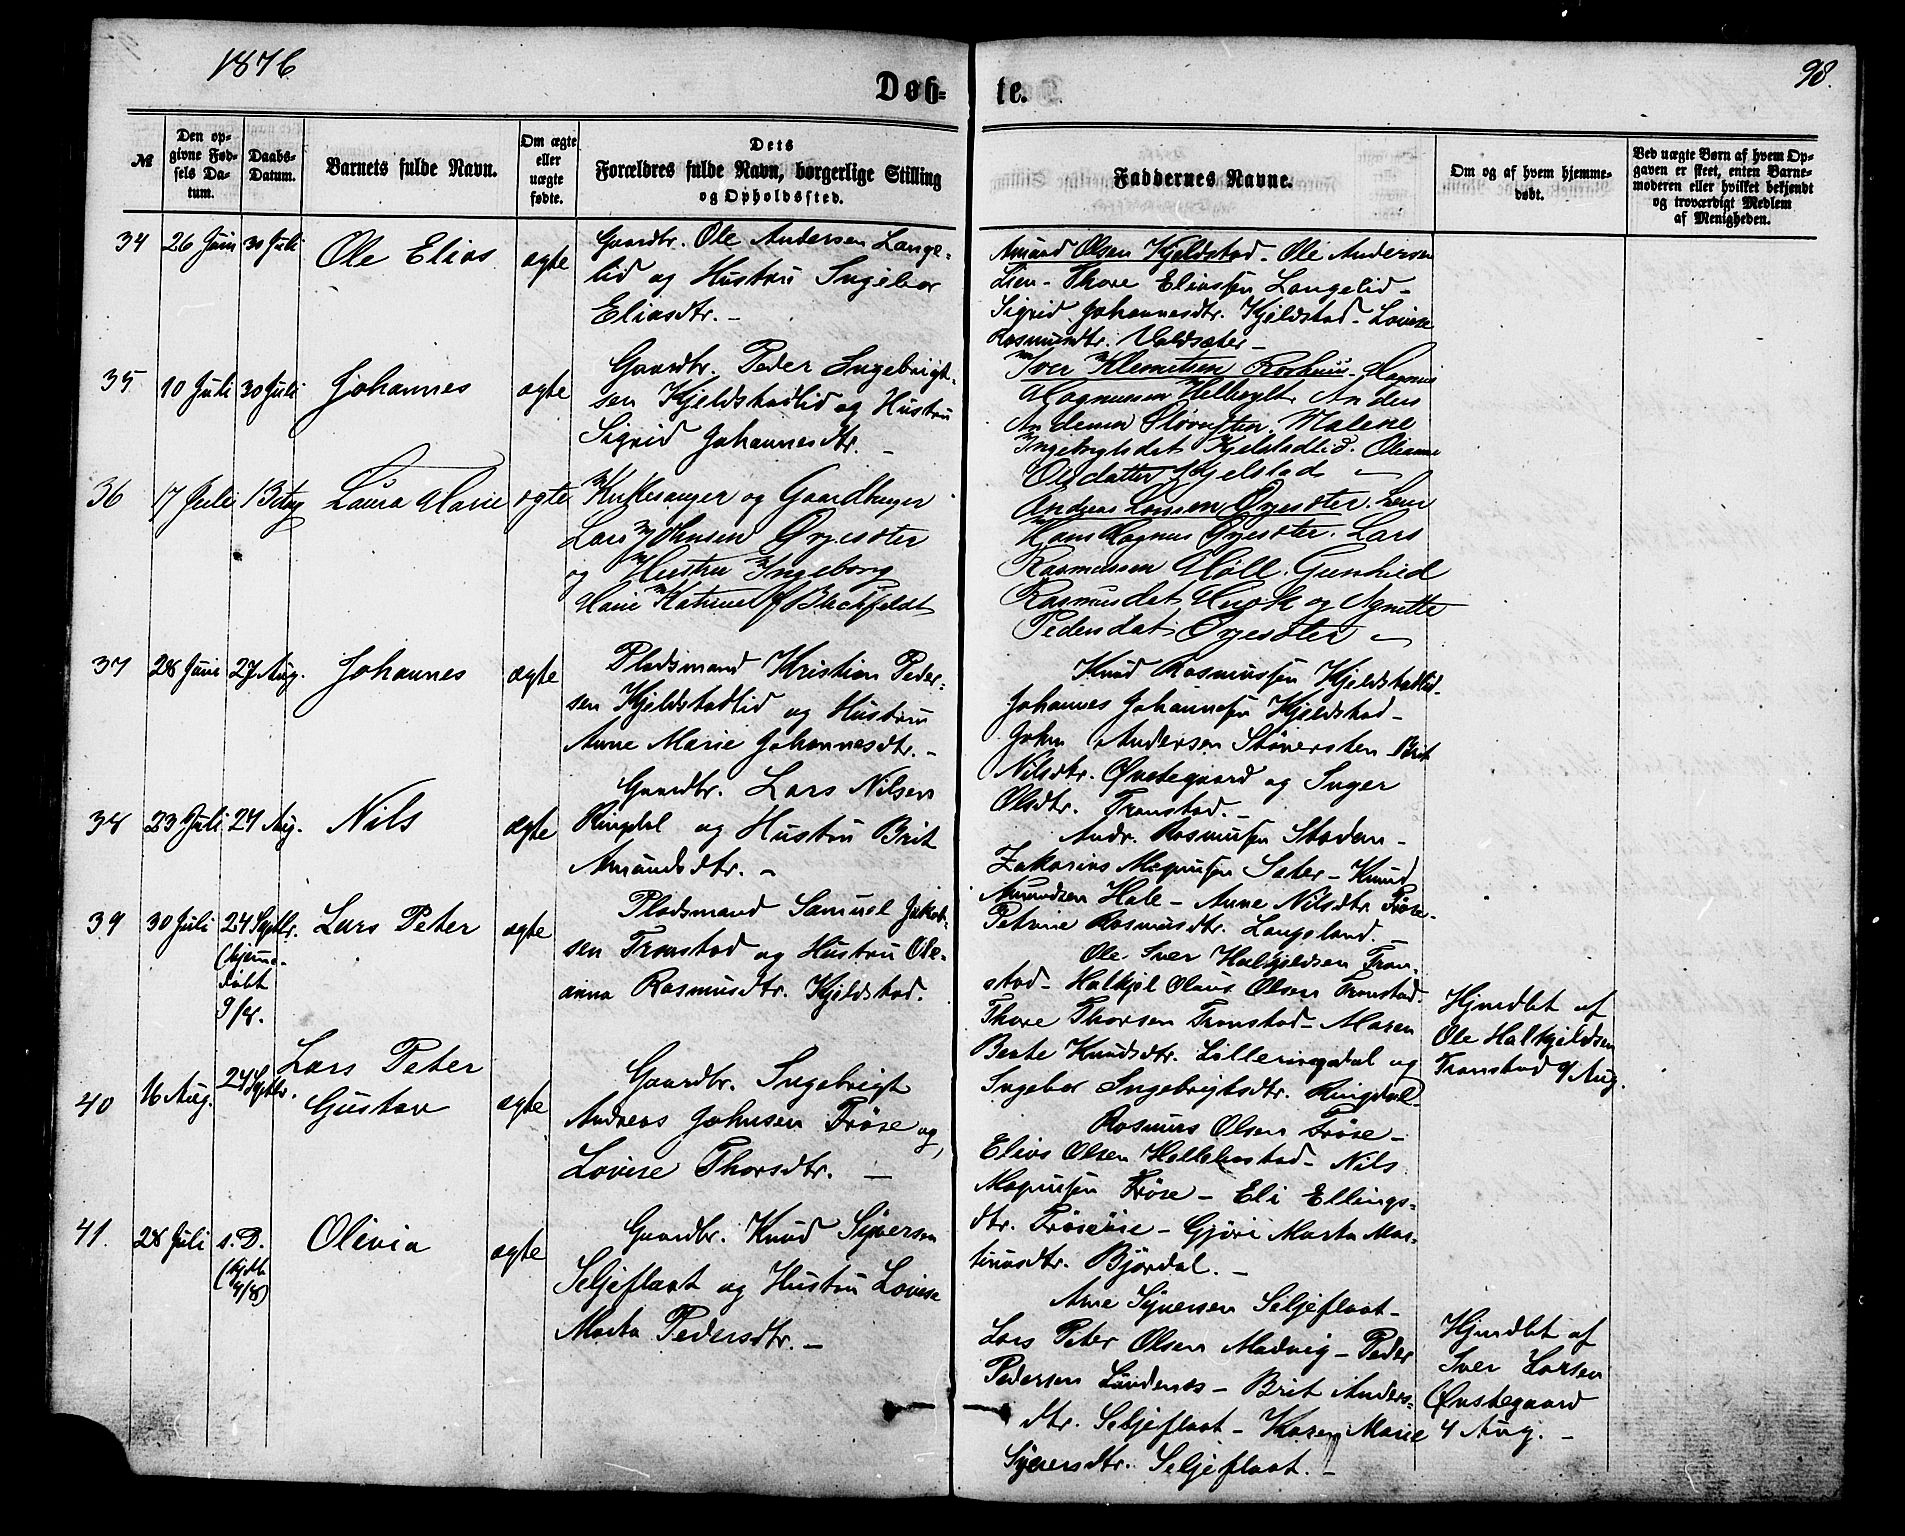 1876
98.
Døb- te.
№
Den op-
givne Fød-
sels Da-
tum.
Daabs-
Datum.
Barnets fulde Navn.
Om ægte
eller
uægte
fødte.
Dets
Forældres fulde Navn, borgerlige Stilling
og Opholdssted.
Faddernes Navne.
Om og af hvem hjemme-
døbt.
Ved uægte Børn af hvem Op-
gaven er skeet, enten Barne-
moderen eller hvilket bekjendt
og troværdigt Medlem
af Menigheden.
34 26 Juni 30 Juli Ole Elias ægte
Gaardbr. Ole Andersen Lange-
lid og Hustru Ingebor
Eliasdtr. –
Amund Olsen Kjeldstad – Ole Andersen
Lien – Thore Eliassen Langelid –
Sigrid Johannesdtr. Kjeldstad – Lovise
Rasmusdtr. Valdsæter –
35 10 Juli 30 Juli Johannes ægte
Gaardbr. Peder Ingebrigt-
sen Kjeldstadlid og Hustru
Sigrid Johannesdtr. –
Iver Klemetsen Roshuus. Magnus
Magnussen Anders
Andersen Malene
Ingebrigtsdat Kjelstadlid. Oleanne
Olsdatter Kjelstad
36 17 Juli 13 Aug Laura Marie ægte
Kirkesanger og Gaardbruger
Lars Johnsen Øvjesæter
og Hustru Ingeborg
Marie Katrine f Blechfeldt
Andreas Larsen Øvjesæter.
Hans Magnus Øvjesæter. Lars
Rasmussen Moll. Gunhild
Rasmusdat og Agnette
Pedersdat Øvjesæter
37 28 Juni 27 Aug. Johannes ægte
Pladsmand Kristian Peder-
sen Kjeldstadlid og Hustru
Anne Marie Johannesdtr. –
Knud Rasmussen Kjeldstadlid.
Johannes Johannesen Kjeldstad –
John Andersen Störersten – Brit
Nilsdtr. Øvstegaard og Inger
Olsdtr. Tronstad. –
38 23 Juli 27 Aug. Nils ægte
Gaardbr. Lars Nilsen
Ringdal og Hustru Brit
Amundsdtr. –
Andr. Rasmusen Stadem –
Zakarias Magnusen Sæter – Knud
Amundsen Hole – Anne Nilsdtr. Frøse –
Petrine Rasmusdtr. Langsland. –
39 30 Juli 24 Septbr. Lars Peter ægte
(hjemme-
døbt
9/8.
Pladsmand Samuel Jakob-
sen Tronstad og Hustru Ole-
anna Rasmusdtr. Kjeldstad.
Ole Iver Halkjeldsen Tron-
stad – Halkjel Olaus Olsen Tronstad.
Thore Thorsen Tronstad – Maren
Berte Knudsdtr. Lilleringdal og
Ingebor Ingebrigtsdtr. Ringdal –
Hjmdbt af
Ole Halkjeldsen
Tronstad 9/Aug.
40 16 Aug. 24 Septbr. Lars Peter
Gustav ægte
Gaardbr. Ingebrigt
Andreas Johnsen Frøse og
Lovise Thorsdtr. –
Rasmus Olsen Frøse –
Elias Olsen Hellebostad – Nils
Magnusen Frøse – Eli Ellings-
dtr. Frøseøie – Gjøri Marta Mar-
tinusdtr. Bjørdal. –
41. 28 Juli s. D. Olivia ægte
(hjdbt
4/8)
Gaardbr. Knud Syversen
Seljeflaat og Hustru Lovise
Marta Pedersdtr. –
Arne Syversen Seljeflaat –
Lars Peter Olsen Madvig – Peder
Pedersen Lindenæs – Brit Anders-
dtr. Seljeflaat – Karen Marie
Syversdtr. Seljeflaat. –
Hjmdbt af
Iver Larsen
Øvstegaard
4 Aug. –